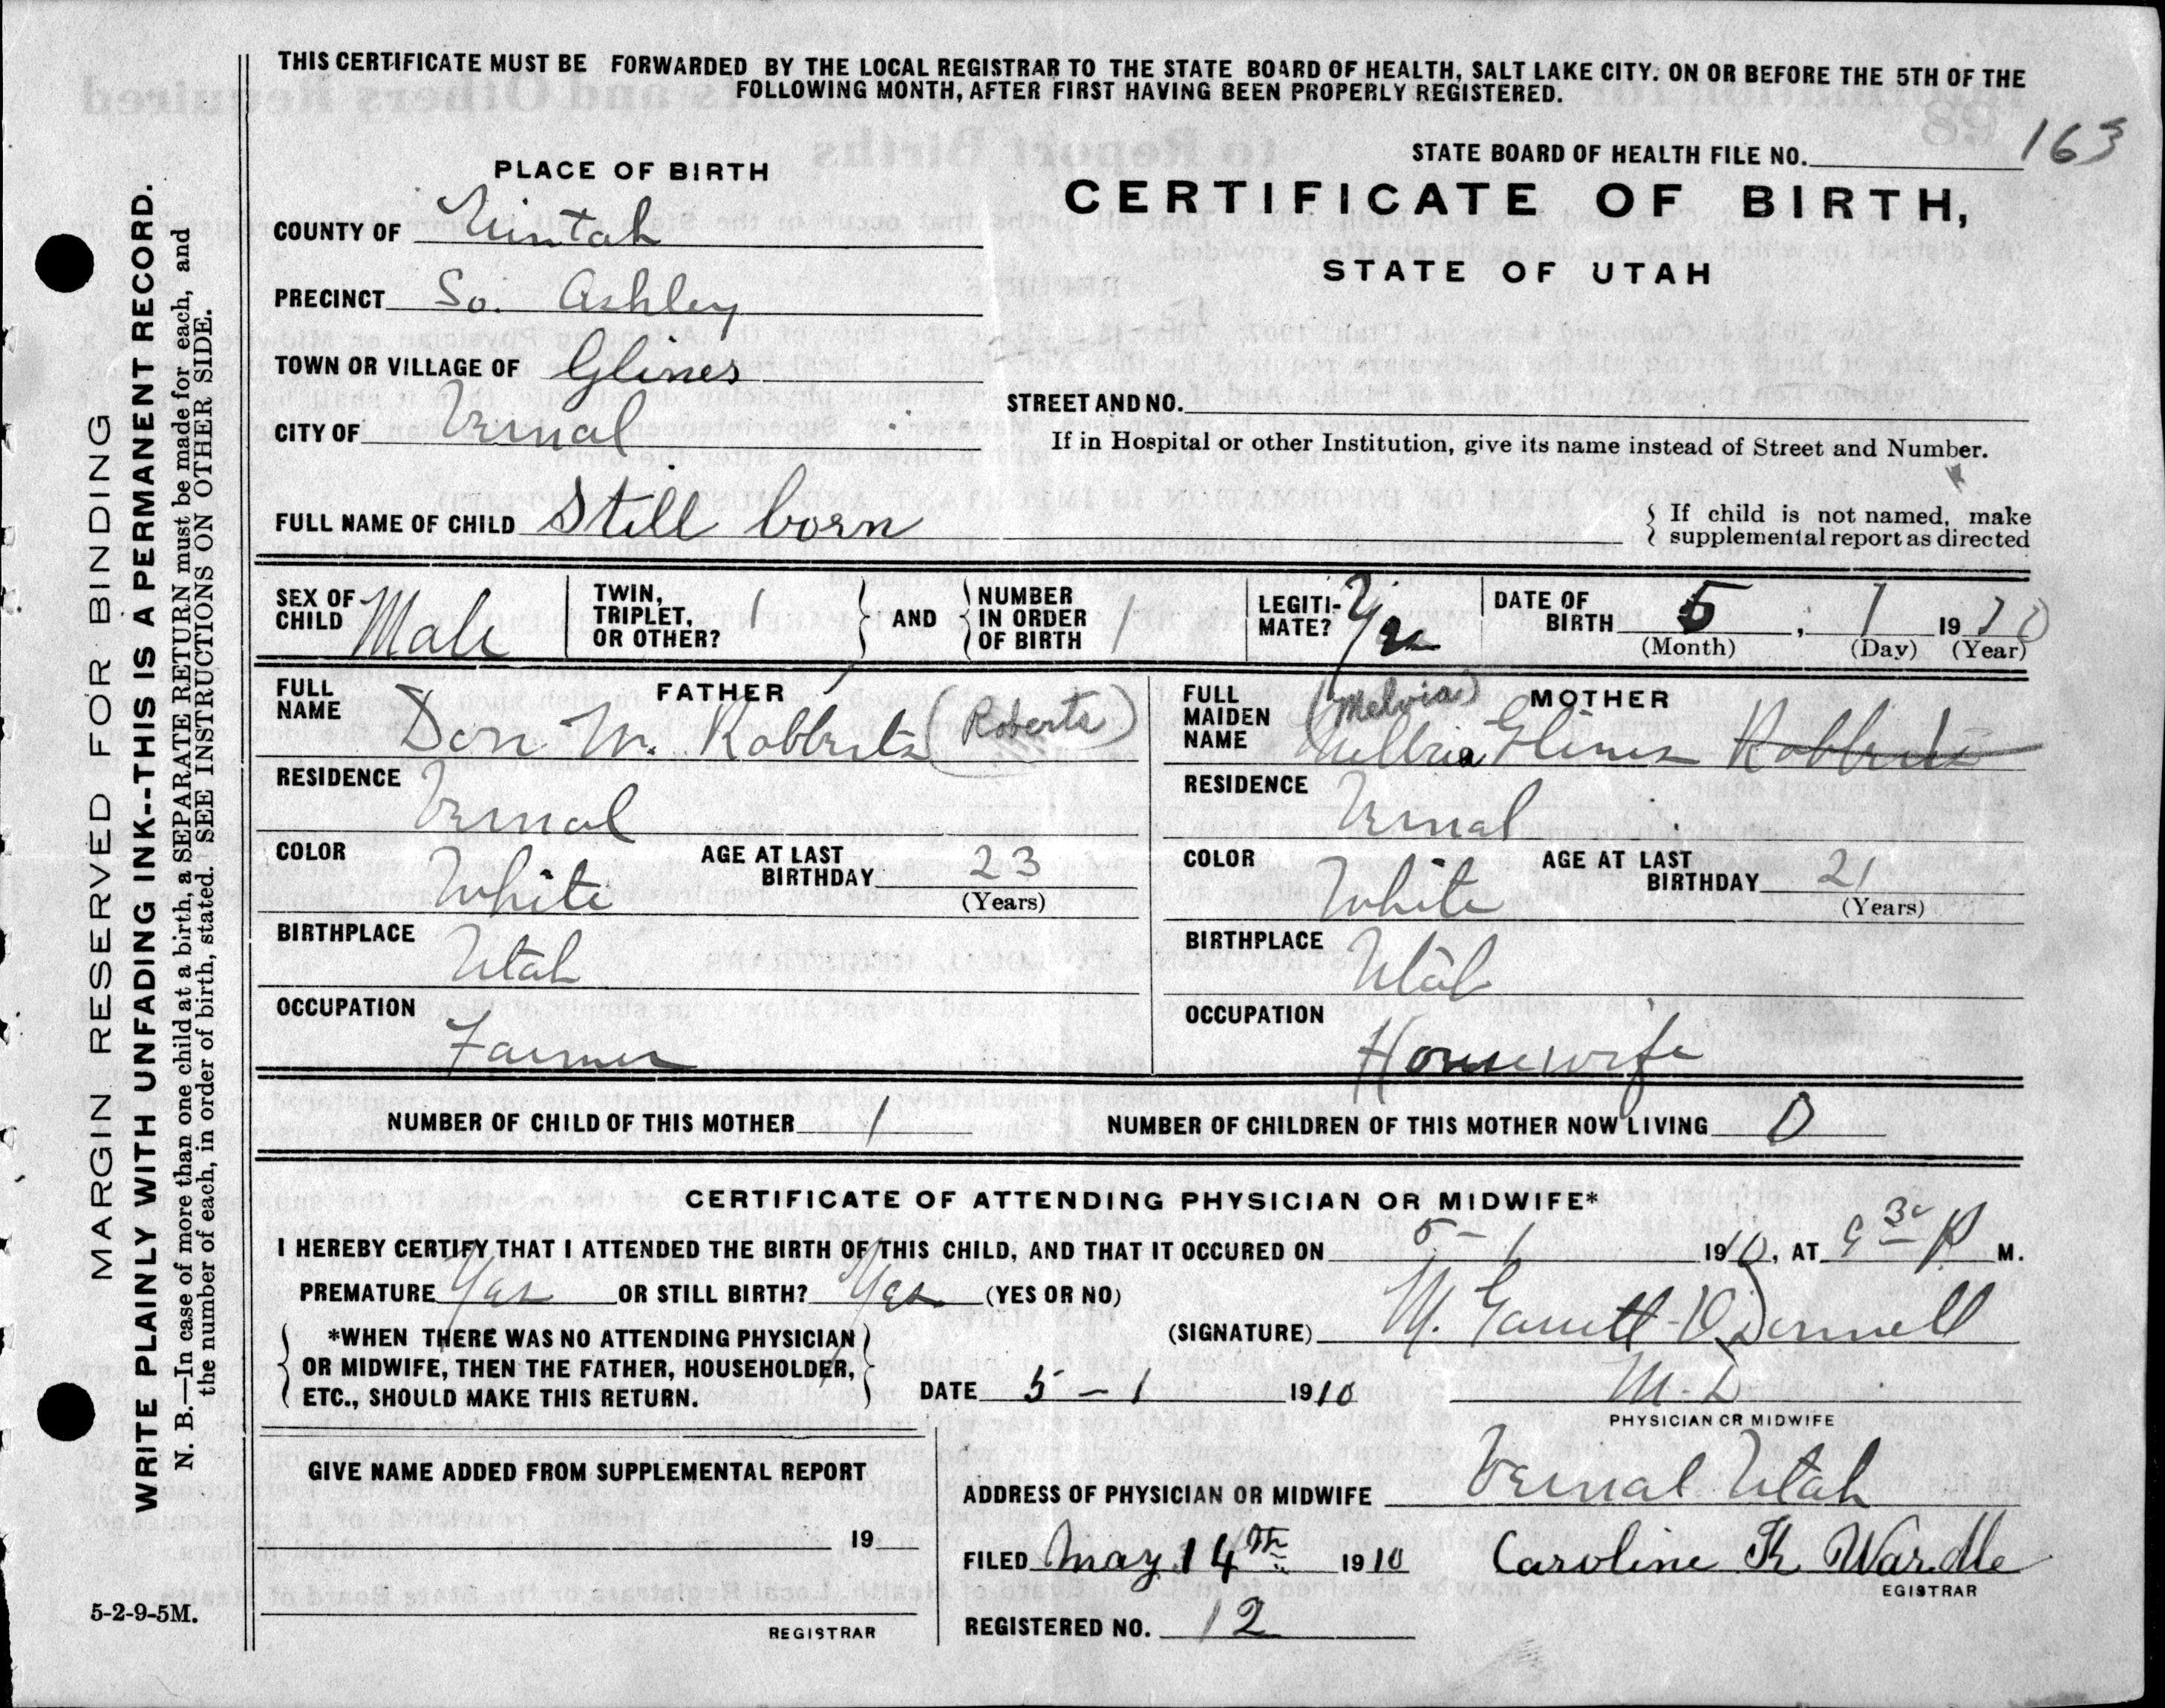 THIS CERTIFICATE MUST BE FORWARDED BY THE LOCAL REGISTRAR TO THE STATE BOARD OF HEALTH, SALT LAKE CITY. ON OR BEFORE THE 5TH OF THE
FOLLOWING MONTH, AFTER FIRST HAVING BEEN PROPERLY REGISTERED.
STATE BOARD OF HEALTH FILE NO. 163
PLACE OF BIRTH
CERTIFICATE OF BIRTH,
STATE OF UTAH
COUNTY OF Uintah
PRECINCT So. Ashley
TOWN OR VILLAGE OF Glines
CITY OF Vernal
STREET AND NO.
If in Hospital or other Institution, give its name instead of Street and Number.
FULL NAME OF CHILD Still born
If child is not named, make
supplemental report as directed
SEX OF CHILD Male
TWIN, TRIPLET, OR OTHER? 1
AND
NUMBER IN ORDER OF BIRTH 1
LEGITI-MATE? Yes
DATE OF BIRTH 5, 1 1910
(Month) (Day) (Year)
FATHER
FULL NAME Don M. Robberts (Roberts)
RESIDENCE Vernal
COLOR White
AGE AT LAST BIRTHDAY 23
(Years)
BIRTHPLACE Utah
OCCUPATION Farmer
MOTHER
(Melvia)
FULL MAIDEN NAME Mellvia Glines Robberts
RESIDENCE Vernal
COLOR White
AGE AT LAST BIRTHDAY 21
(Years)
BIRTHPLACE Utah
OCCUPATION Housewife
NUMBER OF CHILD OF THIS MOTHER 1
NUMBER OF CHILDREN OF THIS MOTHER NOW LIVING 0
CERTIFICATE OF ATTENDING PHYSICIAN OR MIDWIFE*
I HEREBY CERTIFY THAT I ATTENDED THE BIRTH OF THIS CHILD, AND THAT IT OCCURED ON 5-1 1910, AT 9 30 P. M.
PREMATURE Yes OR STILL BIRTH? Yes (YES OR NO)
*WHEN THERE WAS NO ATTENDING PHYSICIAN
OR MIDWIFE, THEN THE FATHER, HOUSEHOLDER,
ETC., SHOULD MAKE THIS RETURN.
(SIGNATURE) M. Garrett-O'Donnell
M.D
PHYSICIAN OR MIDWIFE
DATE 5-1 1910
GIVE NAME ADDED FROM SUPPLEMENTAL REPORT
19
REGISTRAR
ADDRESS OF PHYSICIAN OR MIDWIFE Vernal Utah
FILED May 14th 1910 Caroline K Wardle
EGISTRAR
REGISTERED NO. 12
5-2-9-5M.
MARGIN RESERVED FOR BINDING
WRITE PLAINLY WITH UNFADING INK--THIS IS A PERMANENT RECORD.
N. B.—In case of more than one child at a birth, a SEPARATE RETURN must be made for each, and
the number of each, in order of birth, stated. SEE INSTRUCTIONS ON OTHER SIDE.